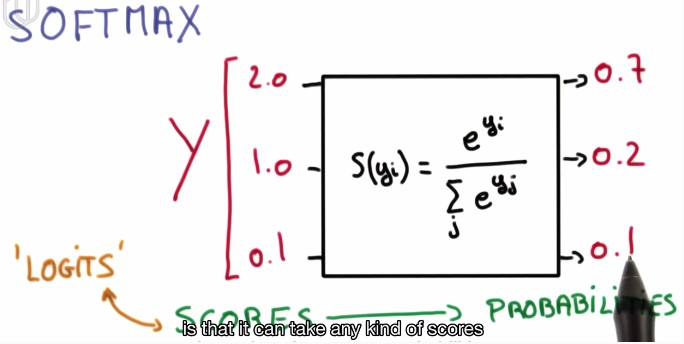 SOFTMAX
Y
2.0
1.0
0.1
S(yi) = e^yi / Σj e^yj
0.7
0.2
0.1
'LOGITS'
SCORES → PROBABILITIES
is that it can take any kind of scores